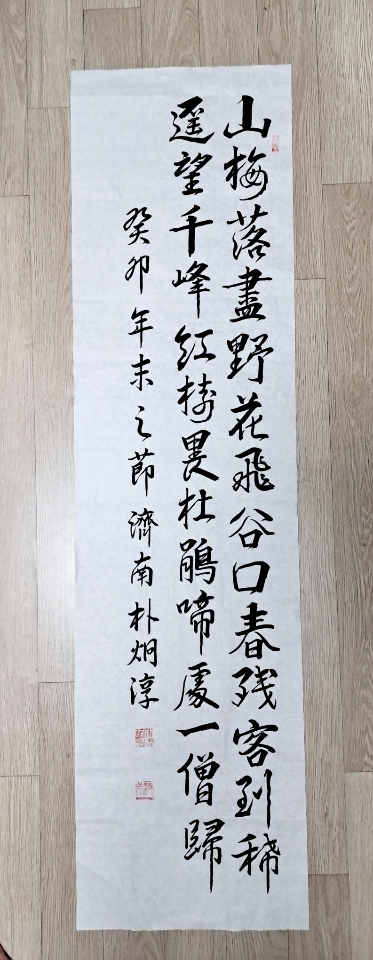 山梅落盡野花飛谷口春殘客到稀
遥望千峰紅樹裏杜鵑啼處一僧歸
癸卯年末之節濟南朴炯淳